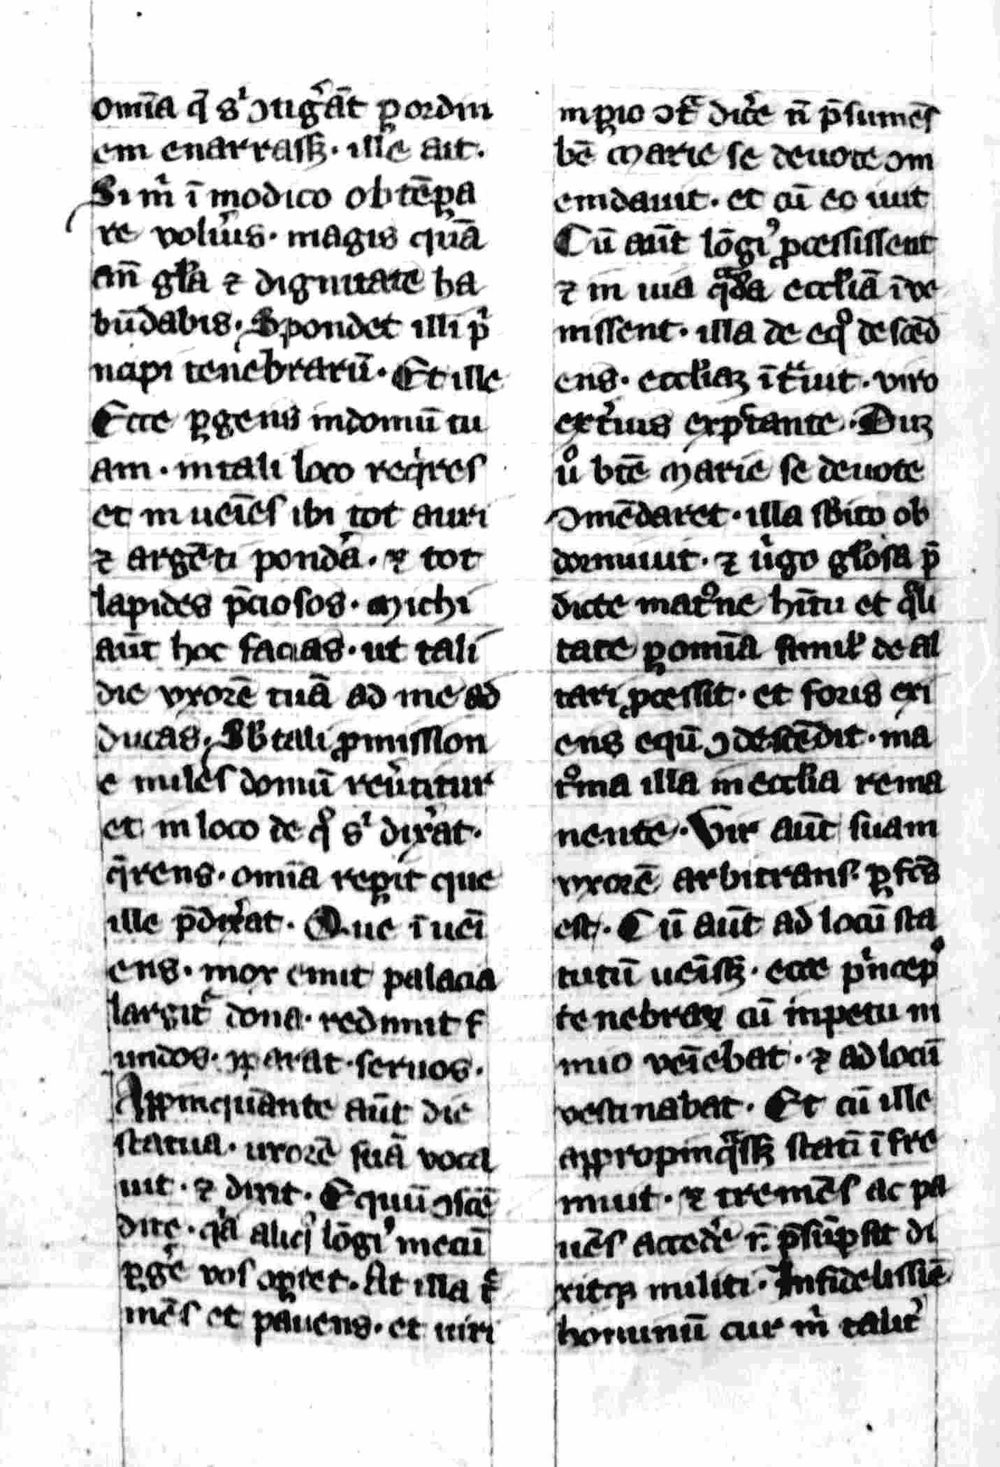 om̄ia q̄ sͥ ↄtig̾āt ꝑ ordin
em enarrassꝫ · ille ait ·
Si m̄ ī modico obtēpa
re volūis · magis quā
an̄ gl̄a ⁊ dignitate ha
būdabis · Spondet illi pͥ
ncipi tenebrarū · Et ille
Ecce ꝑgens in domū tu
am · in tali loco reqͥres
et in ueīes ibi tot auri
⁊ argēti pond̾a · ⁊ tot
lapides p̄ciosos · Michi
aūt hoc facias · ut tali
die vxorē tuā ad me ad
ducas · Sƀ tali ꝓmission
e miles domū reūtitur
et in loco de qͦ sͥ dix̾at ·
q̄rens · om̄ia reꝑit que
ille p̄dix̾at · Que ī ueī
ens · mox emit palacia
largit̾ dona · redimit f
undos · ꝯparat · seruos ·
Aꝓpinquante aūt die
statuta · uxorē suā voca
uit · ⁊ dixit · Equū ↄscē
dite · qͣ aliqͥ lōgiꝰ mecū
ꝑg̾e vos oꝑtet · At illa t̾
mēs et pauens · et uiri
inꝑio ↄt̄ dic̾e n̄ p̄sumēs
bē Marie se deuote ↄm
endauit · et cū eo iuit
Cū aūt lōgiꝰ ꝓcessissent
⁊ in uia qͣdā eccl̄iā ī ue
nissent · illa de eqͦ descēd
ens · eccl̄iaꝫ īt̾uit · viro
ext̾ius expectante · Duꝫ
uͦ btē Marie se deuote
ↄmēdaret · illa sƀito ob
dormiuit · ⁊ uͥgo gl̄osa p̄
dicte matͦne hītu et qͣli
tate ꝑ om̄ia simil̾ de al
tari ꝓcessit · et foris exi
ens equū ↄdescēdit · ma
tͦna illa in eccl̄ia rema
nente · Vir aūt suam
vxorē arbitrans · ꝑfcā
est · Cū aūt ad locū sta
tutū ueīssꝫ · ecce pͥncepꝰ
tenebraꝝ cū inpetu ni
mio veīebat · ⁊ ad locū
vestinabat · Et cū ille
appropinqͣssꝫ statī īfre
muit · ⁊ tremēs ac pa
uēs acced̾e n̄ p̄sūpsit di
xitqꝫ militi · Infidelissie
hominū cur m̄ talit̾